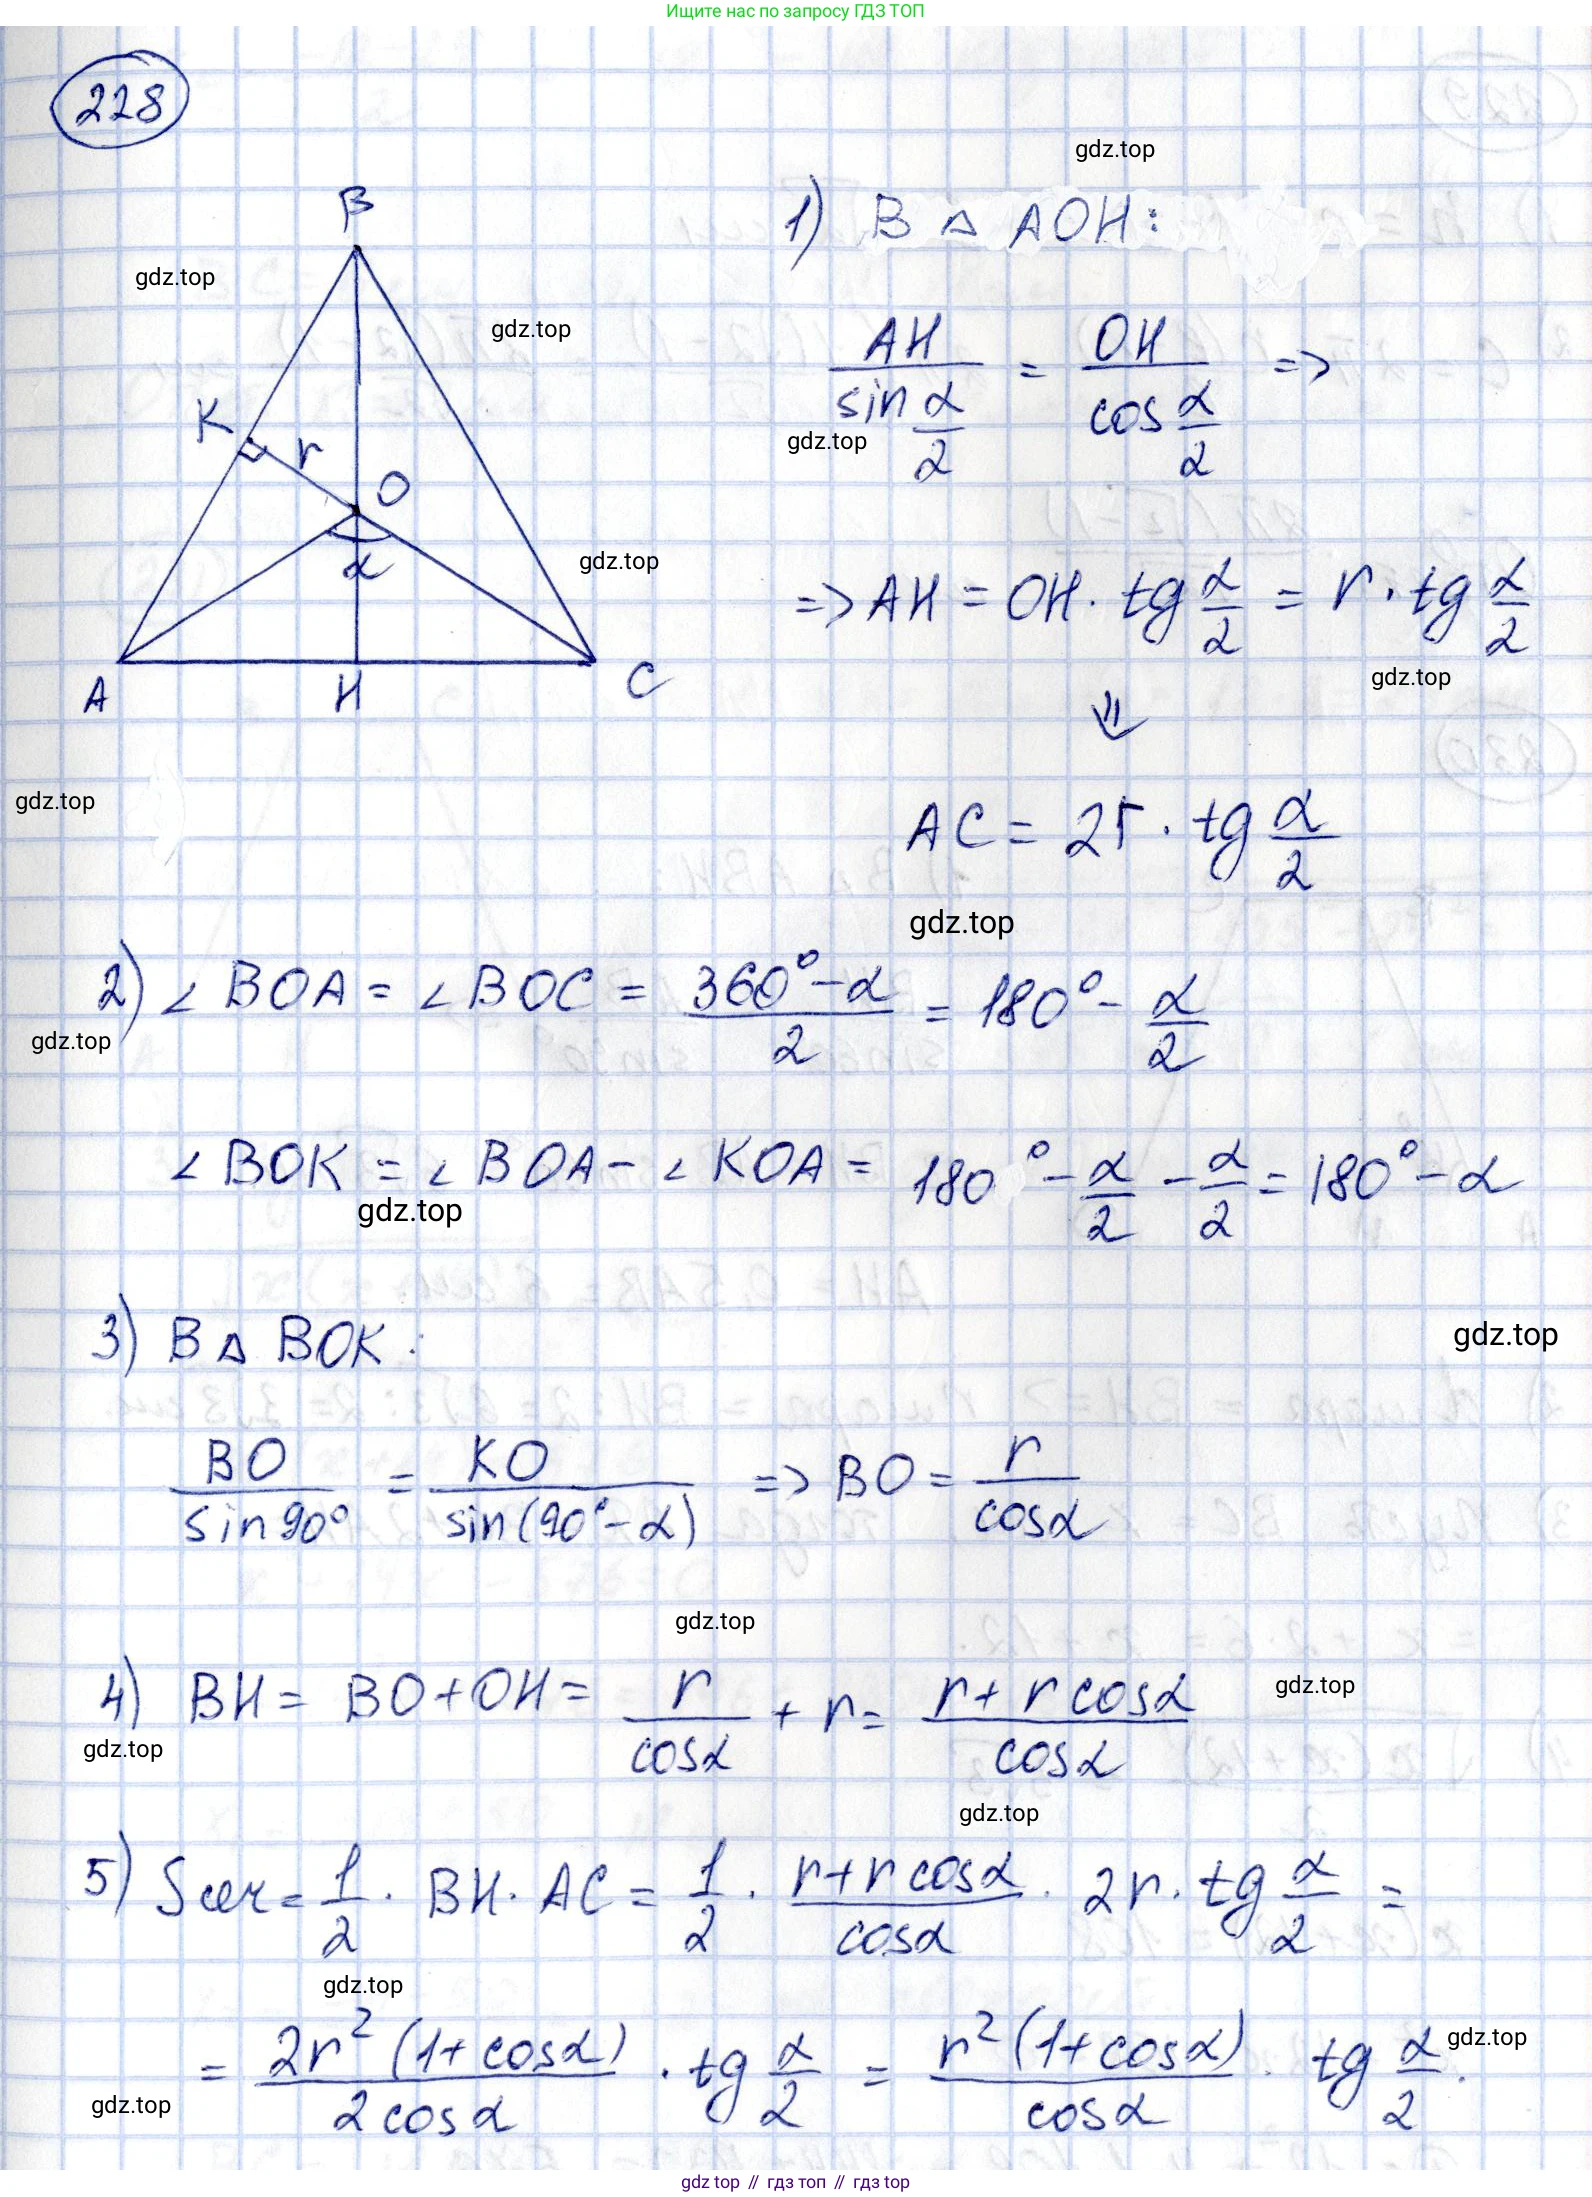 Ищите нас по запросу ГДЗ ТОП
228
gdz.top
B
1) В △ AOH:
gdz.top
gdz.top
AH/sin α/2 = OH/cos α/2 =>
K
r
gdz.top
O
α
gdz.top
=> AH = OH · tg α/2 = r · tg α/2
gdz.top
A
H
C
⇓
gdz.top
AC = 2r · tg α/2
gdz.top
2) ∠ BOA = ∠ BOC = (360° - α)/2 = 180° - α/2
gdz.top
∠ BOK = ∠ BOA - ∠ KOA = 180° - α/2 - α/2 = 180° - α
gdz.top
3) В △ BOK:
gdz.top
BO/sin 90° = KO/sin(90° - α) => BO = r/cosα
gdz.top
4) BH = BO + OH = r/cosα + r = (r + r cosα)/cosα
gdz.top
gdz.top
gdz.top
5) Sсеч = 1/2 · BH · AC = 1/2 · (r + r cosα)/cosα · 2r · tg α/2 =
gdz.top
= 2r² (1 + cosα)/2 cosα · tg α/2 = r² (1 + cosα)/cosα · tg α/2.
gdz.top
gdz.top
gdz top // гдз топ // гдз top